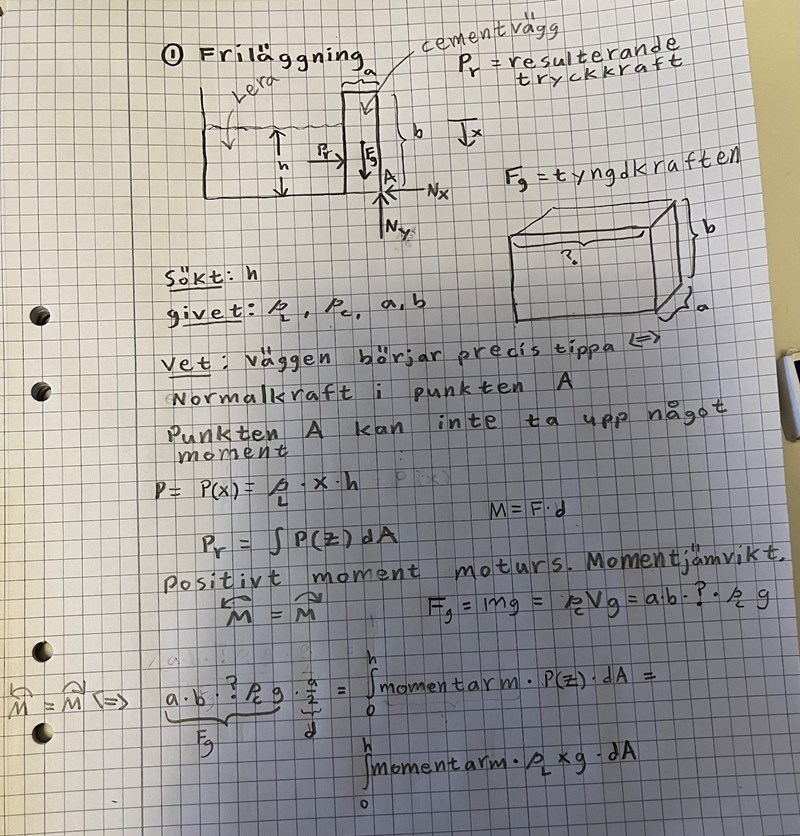 ① Friläggning
cementvägg
Pr = resulterande
tryckkraft
Lera
a
h
Pr
Fg
b
x
A
Nx
Ny
Fg = tyngdkraften
?
b
a
Sökt: h
givet: ρL, ρc, a, b
Vet: väggen börjar precis tippa <=>
Normalkraft i punkten A
Punkten A kan inte ta upp något
moment
P = P(x) = ρL · x · h
M = F·d
Pr = ∫ P(z) dA
Positivt moment moturs. Momentjämvikt.
M↶ = M↷
Fg = mg = ρcVg = a·b·?·ρc g
M↶ = M↷ <=> a·b·? ρc g · a/2 = ∫₀ʰ momentarm · P(z) · dA =
Fg d
∫₀ʰ momentarm · ρL x g · dA